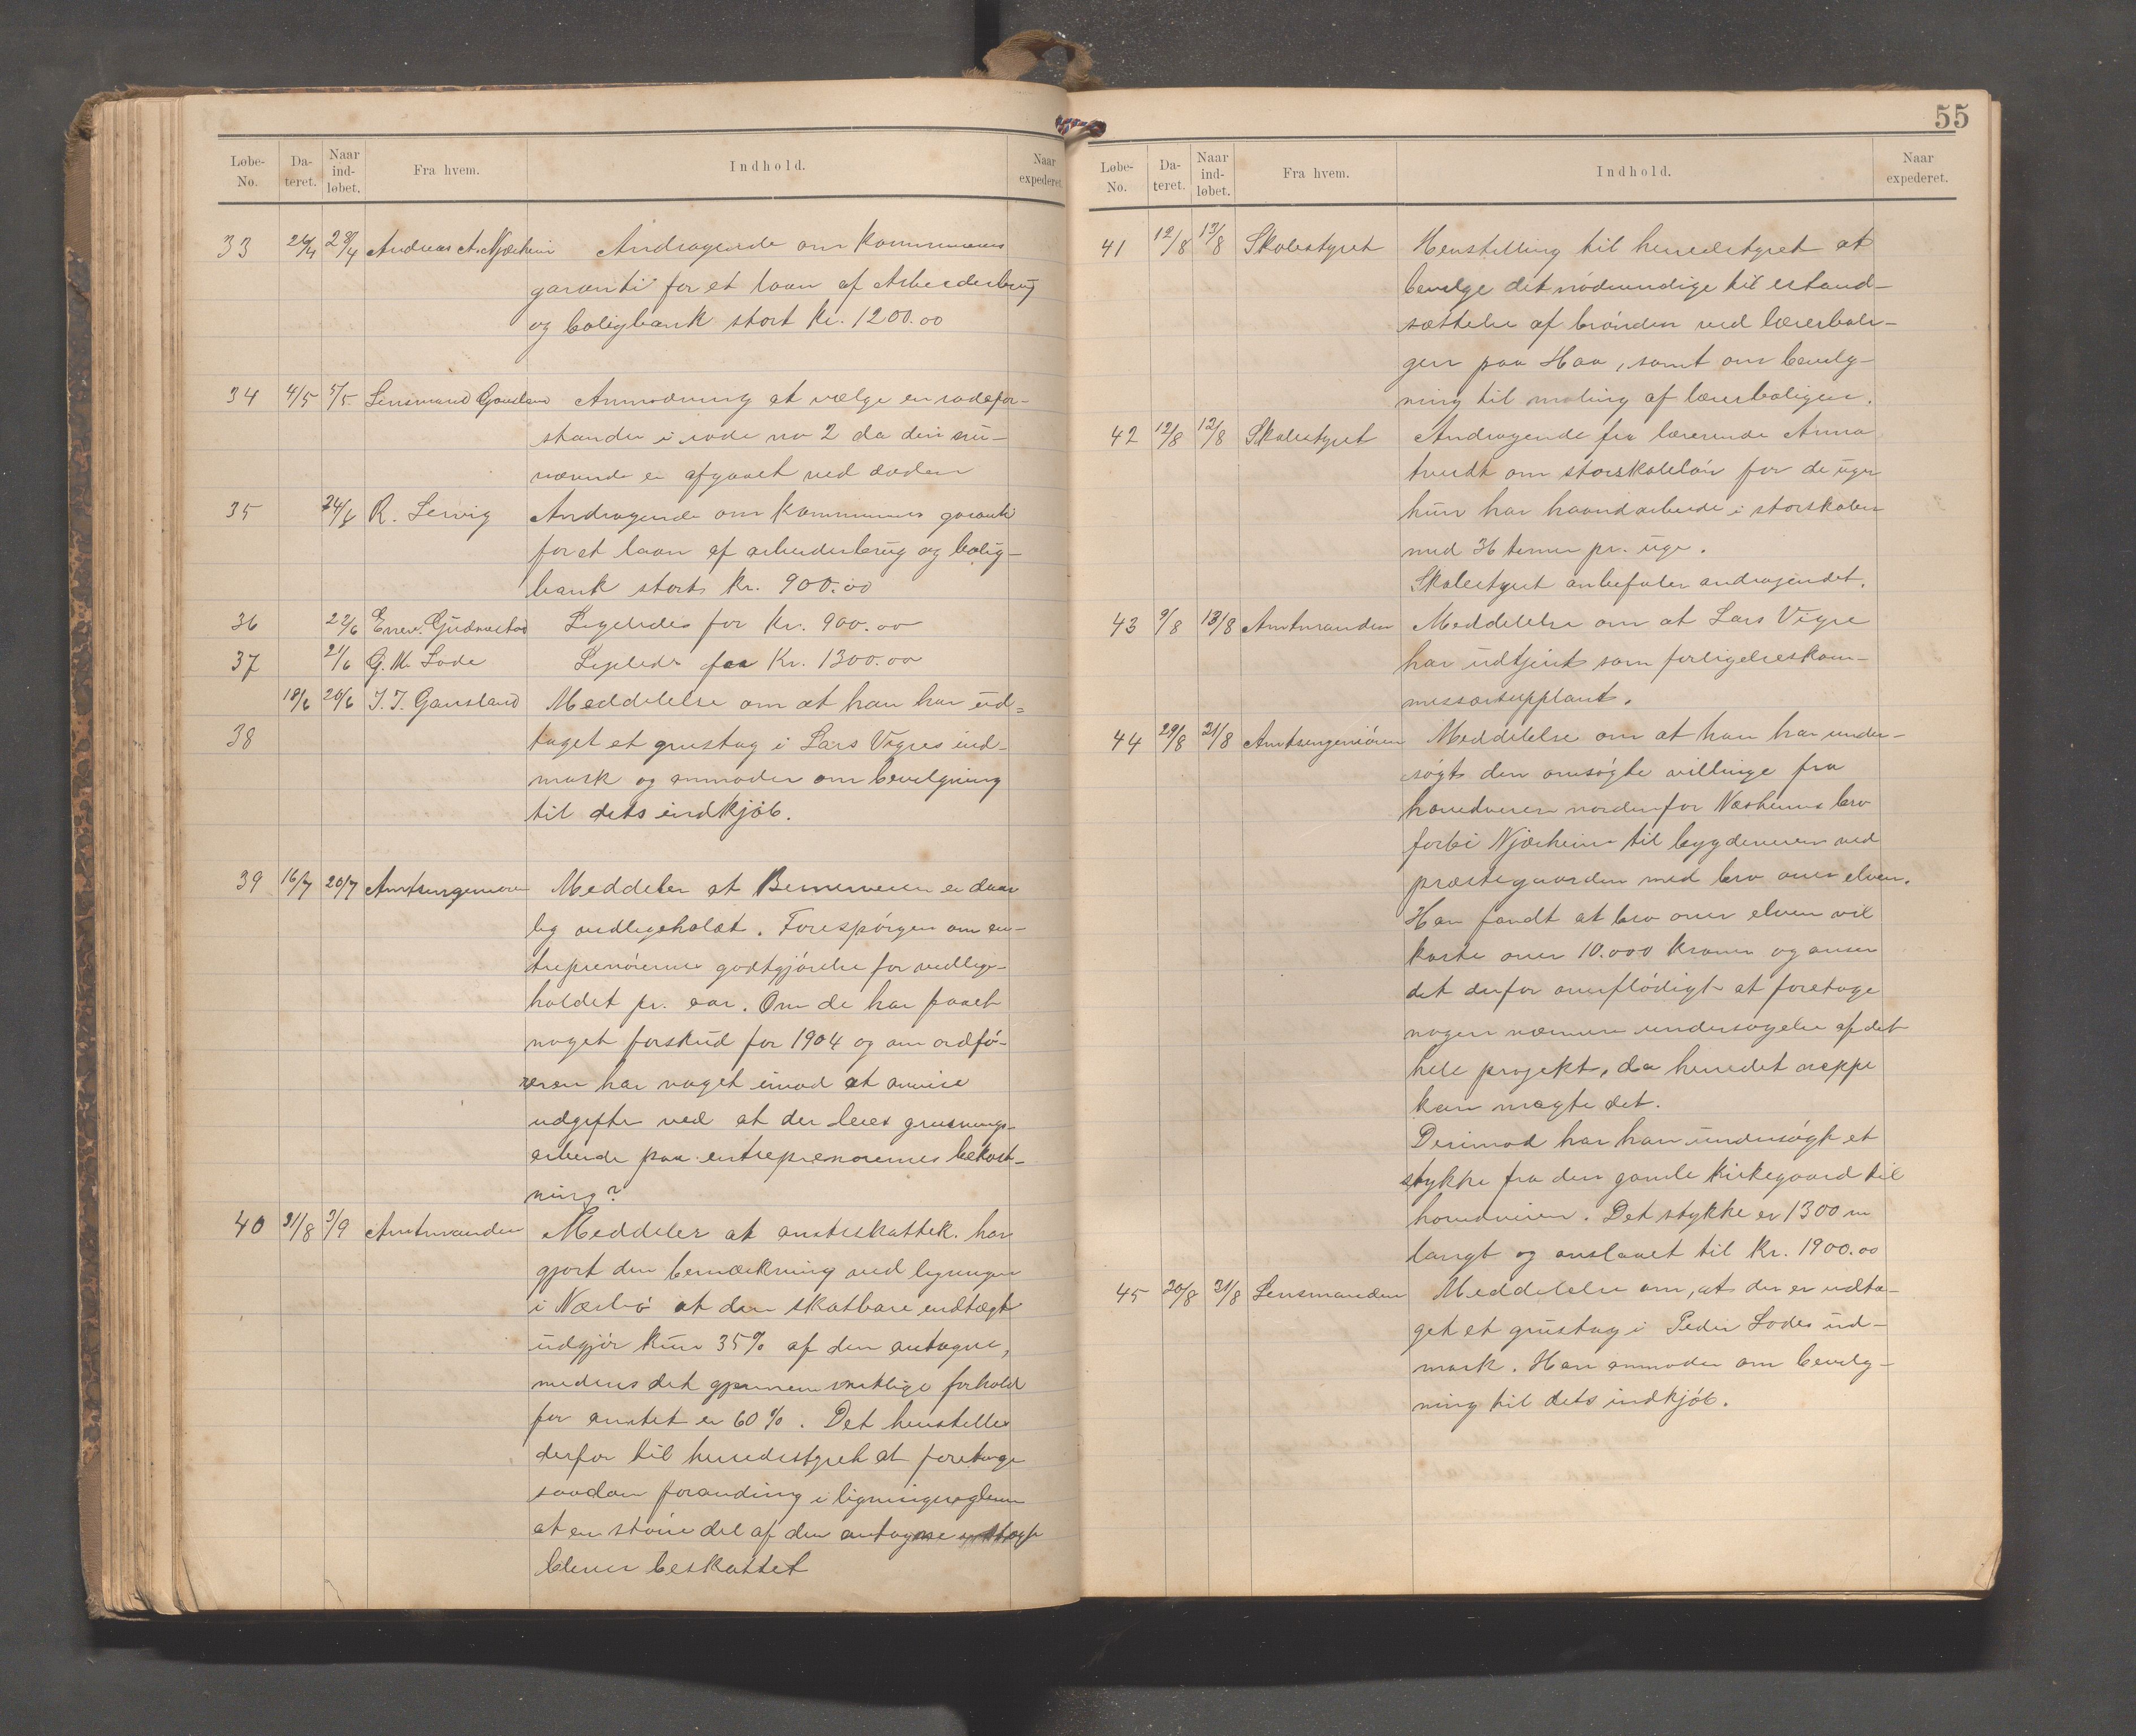 Løbe-No. Da-teret. Naar ind-løbet. Fra hvem. Indhold. Naar expederet.
33 26/4 28/4 Andreas A. Njærheim Andragende om kommunens
garanti for et laan af Arbeiderbrug
og boligbank stort kr. 1200.00
34 4/5 5/5 Lensmand Gausland Anmodning at vælge en rodefor-
stander i rode no 2 da den nu-
værende er afgaaet ved døden
35 24/6 R. Servig Andragende om kommunens garanti
for et laan af arbeiderbrug og bolig-
bank stort kr. 900.00
36 22/6 Enev. Gudmestad Ligeledes for kr. 900.00
37 21/6 G. M. Lode Ligeleds for Kr. 1300.00
18/6 20/6 T. T. Gausland Meddelelse om at han har ud-
38 taget et grustag i Lars Vigres ind-
mark og anmoder om bevilgning
til dets indkjøb.
39 16/7 20/7 Amtsingeniøren Meddeler at Bernerveien er daar
lig vedligeholdt. Forespørgen om en-
treprenørernes godtgjørelse for vedlige-
holdet pr. aar. Om de har faaet
noget forskud for 1904 og om ordfø-
reren har noget imod at anvise
udgifter ved at der leies grusnings-
arbeide paa entreprenørernes bekost-
ning?
40 31/8 3/9 Amtmanden Meddeler at amtsskattek. har
gjort den bemærkning ved ligningen
i Nærbø at den skatbare indtægt
udgjør kun 35% af den antagne,
medens det gjennemsnitlige forhold
for amtet er 60%. Det henstilles
derfor til herredsstyret at foretage
saadan forandring i ligningsreglerne
at en større del af den antagne indtægt
bliver beskattet
55
Løbe-No. Da-teret. Naar ind-løbet. Fra hvem. Indhold. Naar expederet.
41 12/8 13/8 Skolestyret Henstilling til herredstyret at
bevilge det nødvendige til istand-
sættelse af brønden ved lærerboli-
gen paa Haa, samt om bevilg-
ning til maling af lærerboligen.
42 12/8 12/8 Skolestyret Andragende fra lærerinde Anna
tvedt om storskoleløn for de uger
hun har haandarbeide i storskolen
med 36 timer pr. uge.
Skolestyret anbefaler andragendet.
43 9/8 13/8 Amtmanden Meddelelse om at Lars Vigre
har udtjent som forligelseskom-
missærsuppleant.
44 29/8 31/8 Amtsingeniøren Meddelelse om at han har under-
søgt den omsøgte veilinje fra
hovedveien nordenfor Næsheims bro
forbi Njærheim til bygdeveien ved
præstegaarden med bro over elven.
Han fandt at bro over elven vil
koste over 10.000 kroner og anser
det derfor overflødigt at foretage
nogen nærmere undersøgelse af det
hele projekt, da herredet neppe
kan magte det.
Derimod har han undersøgt et
stykke fra den gamle kirkegaard til
hovedveien. Det stykke er 1300 m
langt og anslaaet til kr. 1900.00
45 30/8 31/8 Lensmanden Meddelelse om, at der er udta-
get et grustag i Peder Lodes ud-
mark. Han anmoder om bevilg-
ning til dets indkjøb.